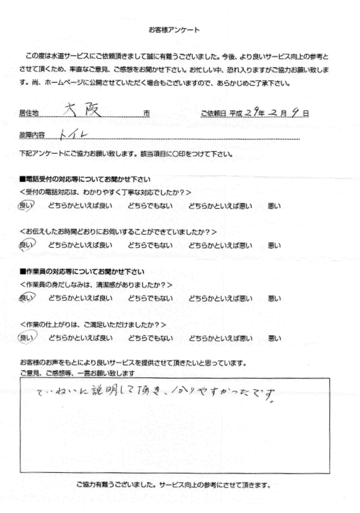 お客様アンケート
この度は水道サービスにご依頼頂きまして誠に有難うございました。今後、より良いサービス向上の参考と
させて頂くため、率直なご意見、ご感想をお聞かせ下さい。お忙しい中、恐れ入りますがご協力お願い致しま
す。尚、ホームページに公開させていただく場合もございますので、あらかじめご了承下さい。
居住地 大阪 市 ご依頼日 平成 29年 2月 9日
故障内容 トイレ
下記アンケートにご協力お願い致します。該当項目に○印をつけて下さい。
■電話受付の対応等についてお聞かせ下さい
<受付の電話対応は、わかりやすく丁寧な対応でしたか?>
良い どちらかといえば良い どちらでもない どちらかといえば悪い 悪い
<お伝えしたお時間どおりにお伺いすることができていましたか?>
良い どちらかといえば良い どちらでもない どちらかといえば悪い 悪い
■作業員の対応等についてお聞かせ下さい
<作業員の身だしなみは、清潔感がありましたか?>
良い どちらかといえば良い どちらでもない どちらかといえば悪い 悪い
<作業の仕上がりは、ご満足いただけましたか?>
良い どちらかといえば良い どちらでもない どちらかといえば悪い 悪い
お客様のお声をもとにより良いサービスを提供させて頂きたいと思っています。
ご意見、ご感想等、一言お願い致します
ていねいに説明して頂き、分りやすかったです。
ご協力有難うございました。サービス向上の参考にさせて頂きます。